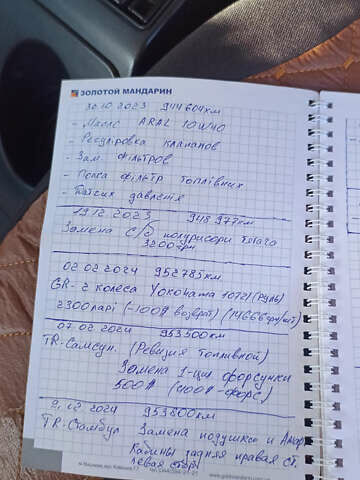 ЗОЛОТОЙ МАНДАРИН
30.10.2023 944604км
- Масло ARAL 10W40
- Регулировка клапанов
- Зам. фільтров
- Помпа фільтр топлівных
- Датчик давленія
19.12.2023 948977км
Замена с/б полурисори тягача
3200грн
02.02.2024 952785км
GR- 2 колеса Yokohama 107Zl(Руль)
2300ларі (-100$ возврат) (14666грн/шт)
07.02.2024 953500км
TR-Самсун. (Ревизия топливной)
Замена 1-ци форсунки
500$ (400$-форс)
9.02.2024 953800км
TR-Стамбул Замена подушка и Амор
Кабины задняя правая ст.
левая стор.